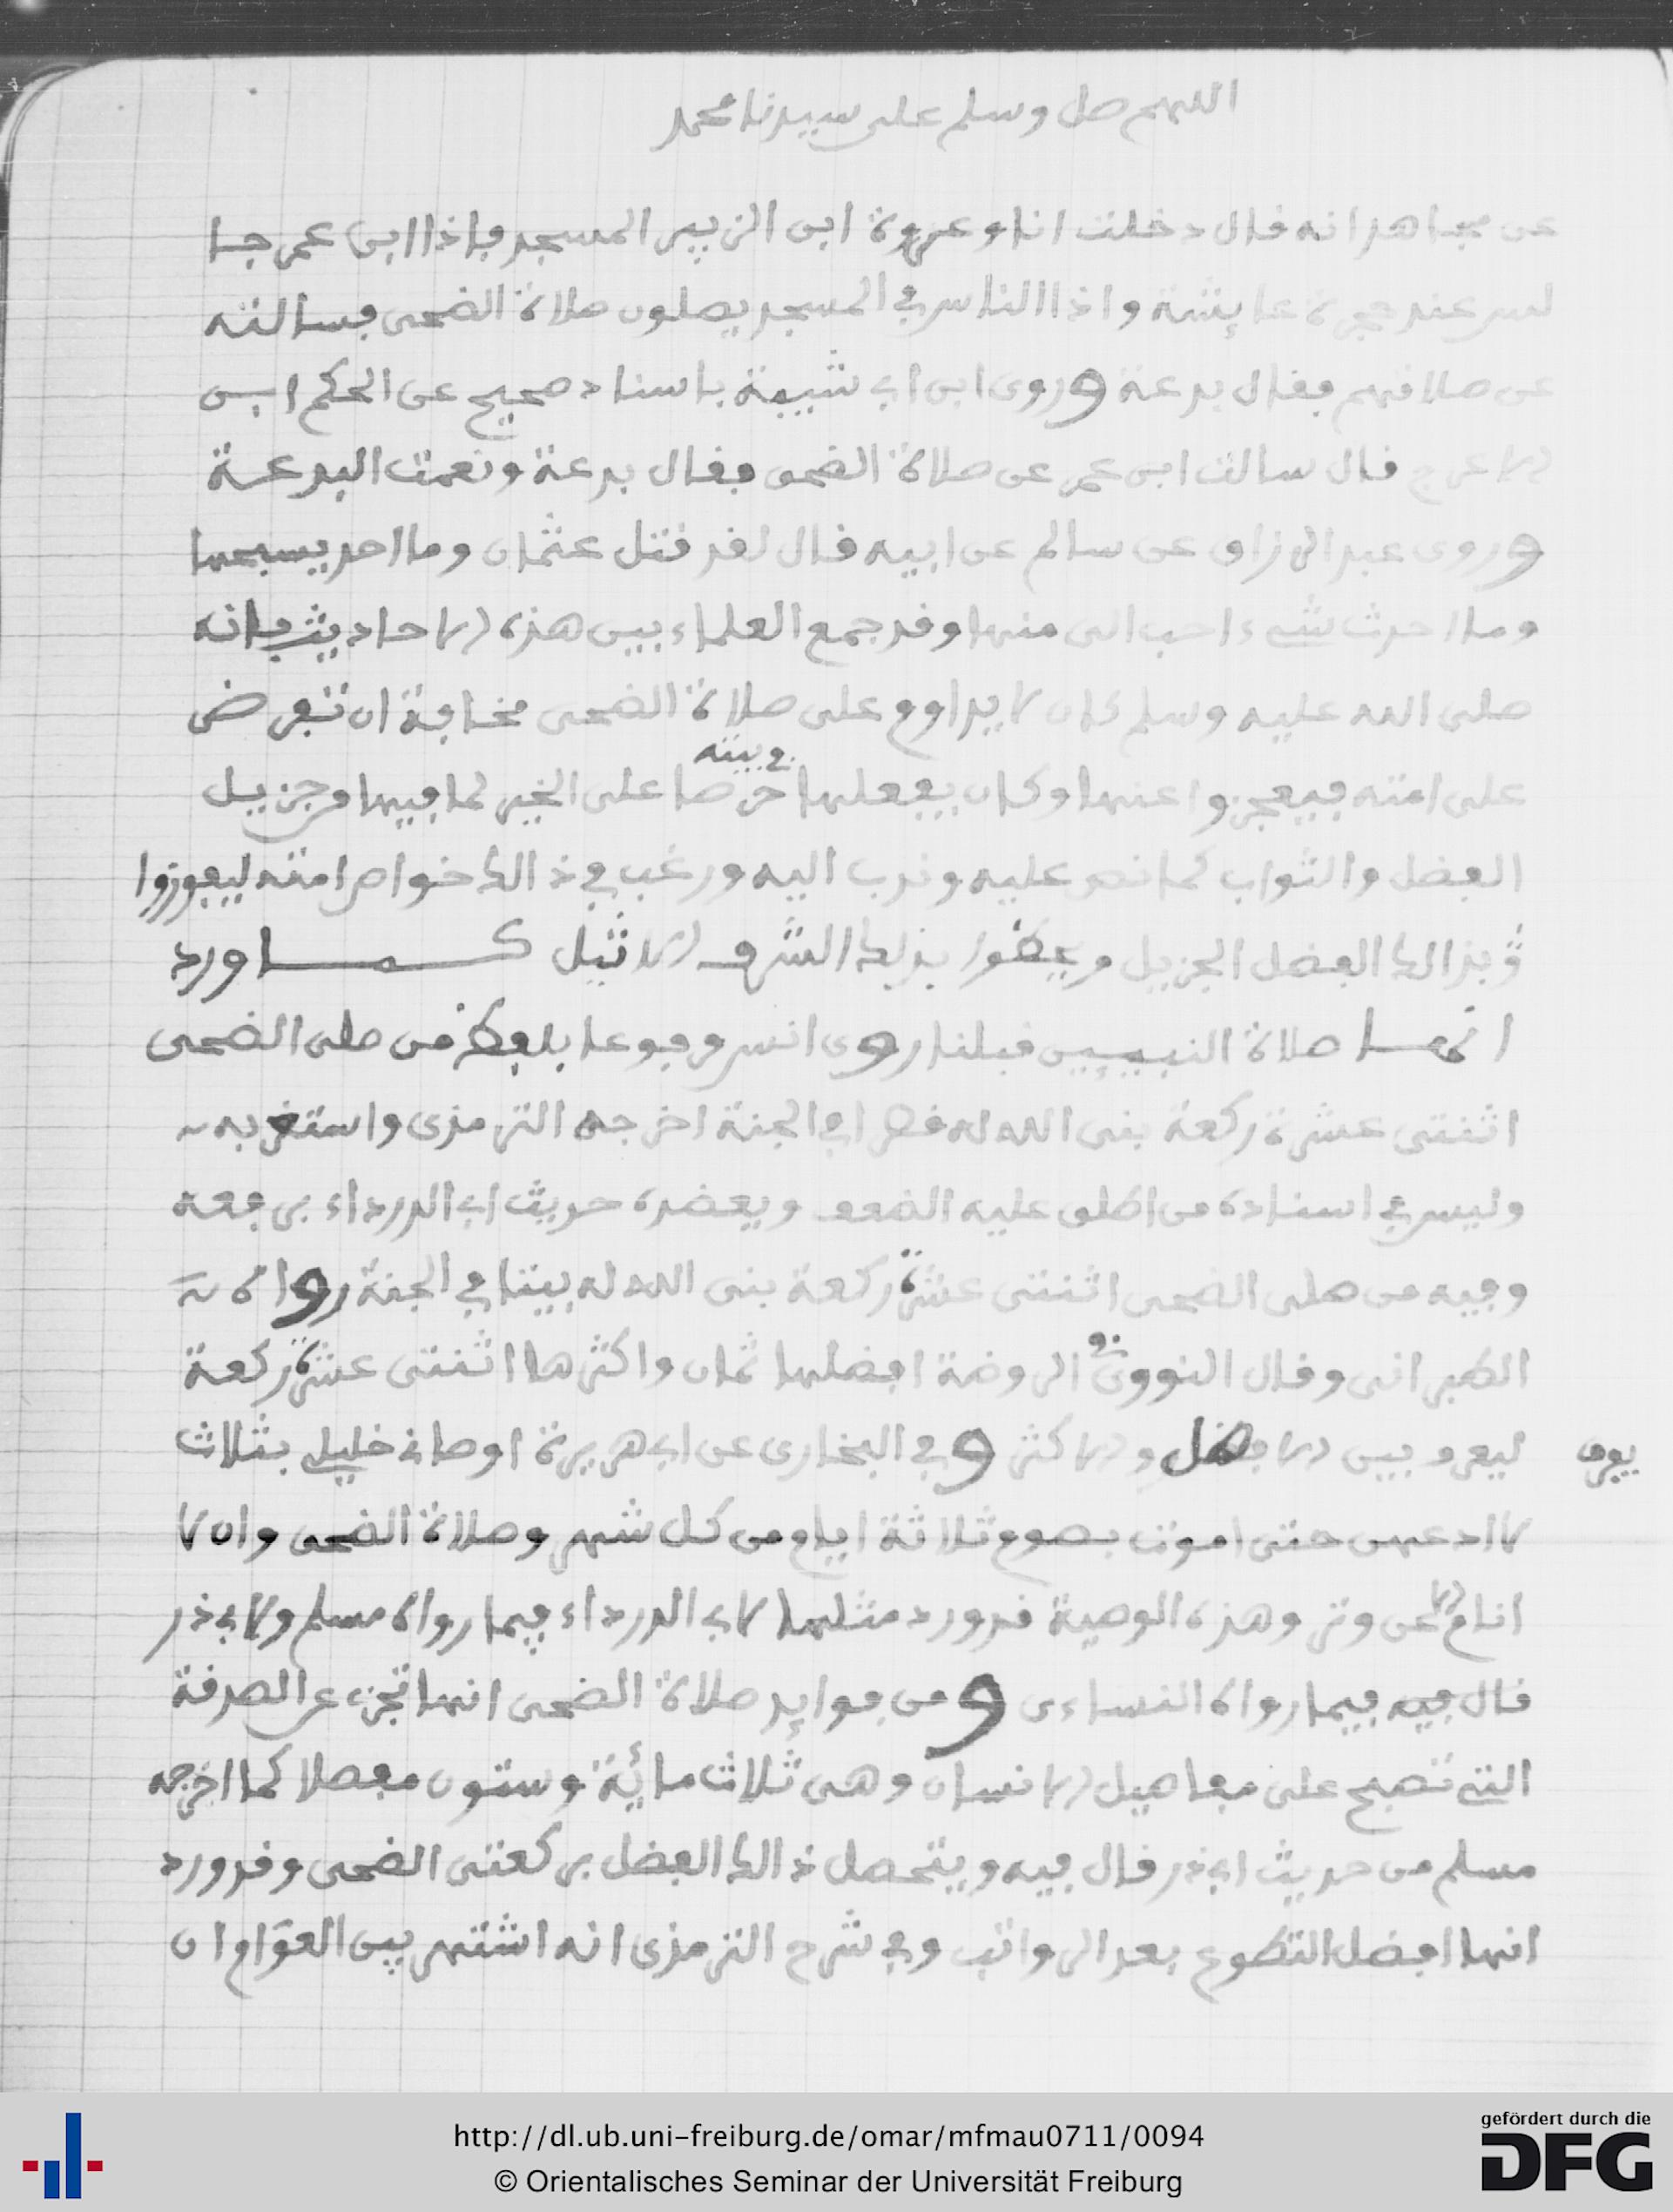 اللهم صل وسلم على سيدنا محمد
عن مجاهد انه قال دخلت انا وعروة ابن الزبير المسجد فإذا ابن عمر جا
لس عند حجرة عايشة واذا الناس في المسجد يصلون صلاة الضحى فسالته
عن صلاتهم فقال بدعة وروى ابن ابي شيبة باسناد صحيح عن الحكم ابن
الاعرج قال سالت ابن عمر عن صلاة الضحى فقال بدعة ونعمت البدعة
وروى عبد الرزاق عن سالم عن ابيه قال لقد قتل عثمان وما احد يسبحها
وما احدث شيء احب الى منها وقد جمع العلماء بين هذه الاحاديث بانه
صلى الله عليه وسلم كان لا يداوم على صلاة الضحى مخافة ان تفرض
على امته فيعجزوا عنها وكان يفعلها في بيته حرصا على الخير لما فيها من جزيل
الفضل والثواب كما نص عليه وندب اليه ورغب في ذالك خواص امته ليفوزوا
بذالك الفضل الجزيل و بذلك الشرف الاثيل كما ورد
انها صلاة النبيين قبلنا روى انس مرفوعا بلفظ من صلى الضحى
اثنتى عشرة ركعة بنى الله له قصرا في الجنة اخرجه الترمذى واستغربه
وليس في اسناده من اطلق عليه الضعف ويعضده حديث ابي الدرداء يرفعه
وفيه من صلى الضحى اثنتى عشرة ركعة بنى الله له بيتا في الجنة رواه
الطبرانى وقال النووى في الروضة افضلها ثمان واكثرها اثنتى عشرة ركعة
ليفرق بين الافضل والاكثر وفي البخارى عن ابي هريرة اوصاني خليلي بثلاث
يفرق
لا ادعهن حتى اموت بصوم ثلاثة ايام من كل شهر وصلاة الضحى وان لا
انام الا عن وتر وهذه الوصية قد ورد مثلها لابي الدرداء فيما رواه مسلم ولابي ذر
قال فيه فيما رواه النساءى ومن فوايد صلاة الضحى انها تجزي عن الصدقة
التي تصبح على مفاصيل الانسان وهى ثلاث مائة وستون مفصلا كما اخرجه
مسلم من حديث ابي ذر قال فيه ويتحصل ذالك الفضل بركعتى الضحى وقد ورد
انها افضل التطوع بعد الرواتب وفي شرح الترمذى انه اشتهر بين العوام ان
http://dl.ub.uni-freiburg.de/omar/mfmau0711/0094
© Orientalisches Seminar der Universität Freiburg
gefördert durch die
DFG